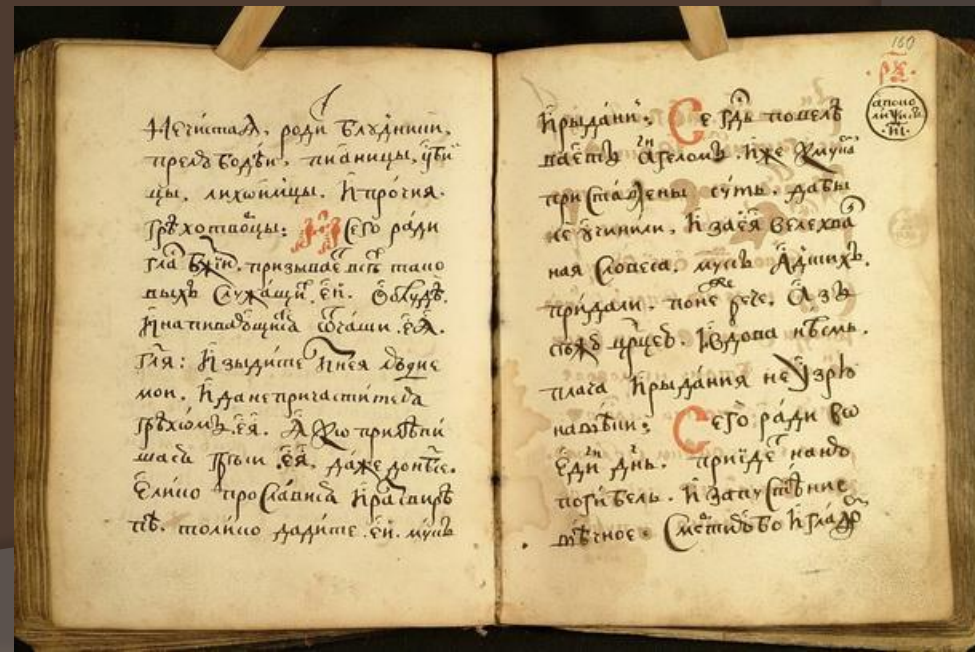 Нечистаѧ, роди блꙋдници,
прелюбодѣи, пиѧницы, ꙋби
цы, лихоимцы. И прочиѧ.
грѣхотвоцы: Сего ради
гла бжіи. призывае всѣ тако
выхъ слꙋжащи ей. ѿ блꙋдъ.
И напивающисѧ ѿ чаши еѧ.
глѧ: Изыдите из неѧ людие
мои. И да не причаститеса
грѣхомъ еѧ. прилѣпи
шасѧ грѣси еѧ, даже до нбсе.
Елико прослависѧ и
толико дадите ей. мꙋкъ
160
И рыдании; Се гдь повелѣ
ваетъ агеломъ. Иже к мꙋка
приставлены сꙋть. дабы
се ꙋчинили, И за еѧ велехва
наѧ словеса, мꙋкъ адскихъ.
придали. понеже рече. Азъ
сѣжꙋ црцею. И вдова нѣсмь.
плача И рыданиѧ не ꙋзрю
на вѣки; Сего ради во
еди днь. приіде на ню
погибель. И запꙋстѣние
вѣчное. Сметь бо И гла